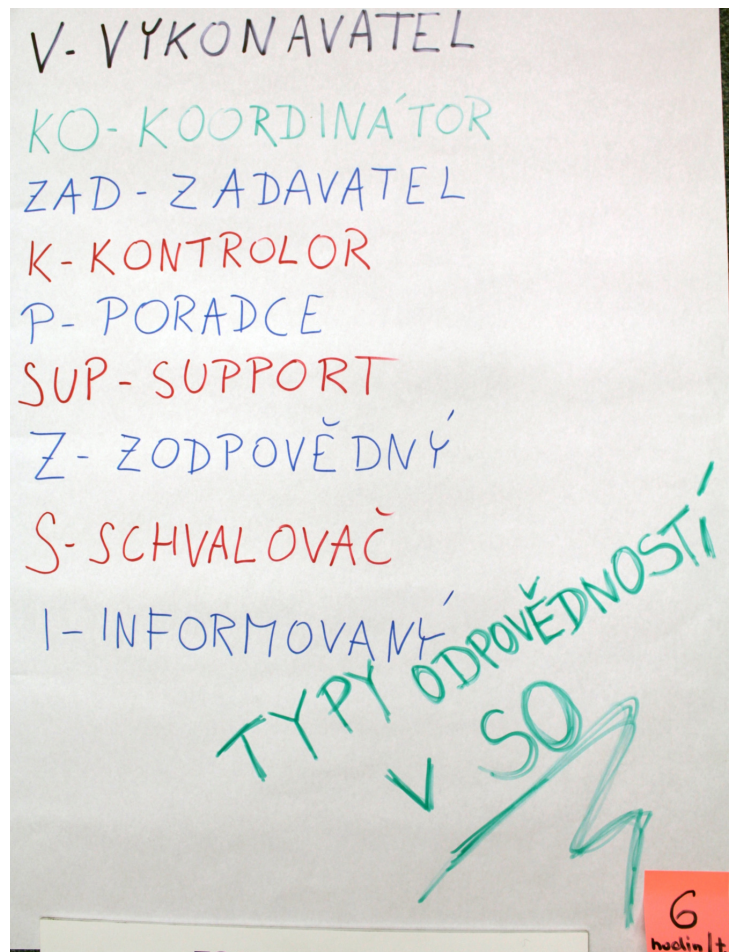 V- VYKONAVATEL
KO- KOORDINÁTOR
ZAD - ZADAVATEL
K- KONTROLOR
P- PORADCE
SUP- SUPPORT
Z- ZODPOVĚDNÝ
S- SCHVALOVAČ
I- INFORMOVANÝ
TYPY ODPOVĚDNOSTÍ
V SO
6
hodin/t